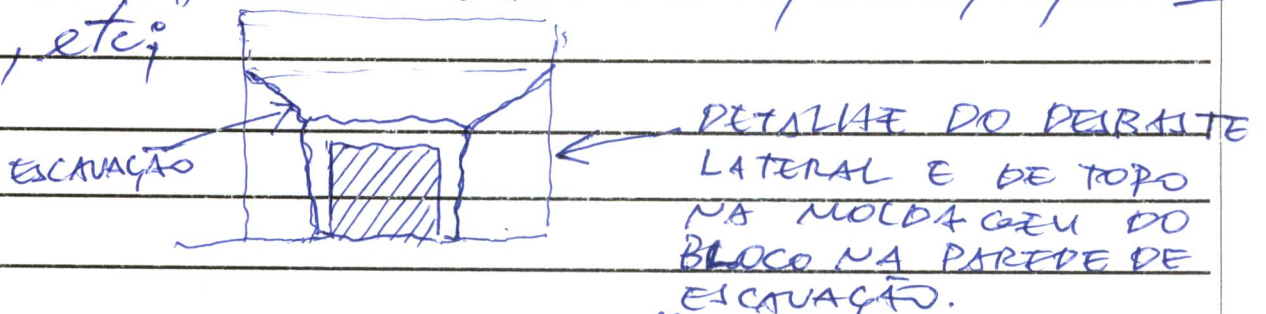 , etc;
ESCAVAÇÃO
DETALHE DO DESBASTE
LATERAL E DE TOPO
NA MOLDAGEM DO
BLOCO NA PAREDE DE
ESCAVAÇÃO.